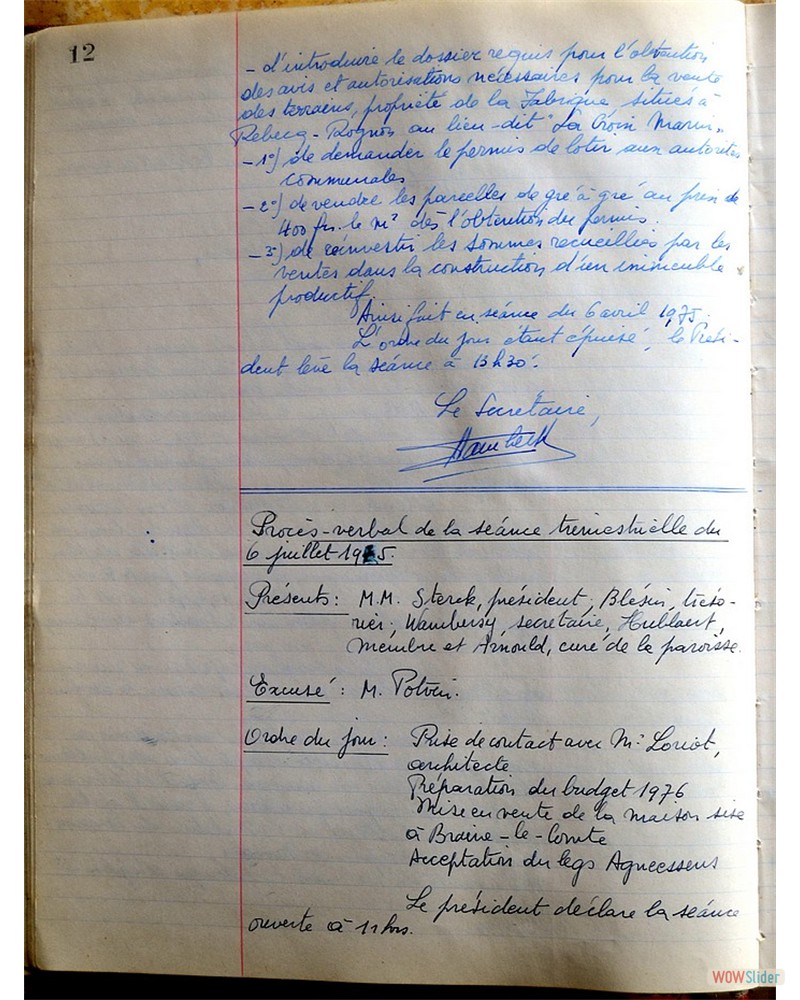 12
- d'introduire le dossier requis pour l'obtention
des avis et autorisations nécessaires pour la vente
des terrains, propriété de la Fabrique, situés à
Rebecq-Rognon au lieu-dit "La Croix Marin".
- 1°) de demander le permis de lotir aux autorités
communales
- 2°) de vendre les parcelles de gré à gré au prix de
400 frs. le m² dès l'obtention du permis.
- 3°) de réinvestir les sommes recueillies par les
ventes dans la construction d'un immeuble
productif.
Ainsi fait en séance du 6 avril 1975.
L'ordre du jour étant épuisé, le Prési-
dent lève la séance à 13h30'.
Le Secrétaire,
Procès-verbal de la séance trimestrielle du
6 juillet 1975.
Présents: M.M. Sterck, président; Blésin, tréso-
rier; Wambersy, secrétaire, Hublaert,
membre et Arnould, curé de la paroisse.
Excusé: M. Potvin.
Ordre du jour: Prise de contact avec Mr Loriot,
architecte
Préparation du budget 1976
Mise en vente de la maison sise
à Braine-le-Comte
Acceptation du legs Agneessens
Le président déclare la séance
ouverte à 11 hrs.
WOWSlider